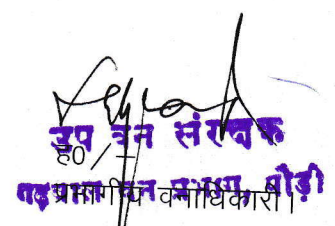 उप वन संरक्षक
ह0/-
गढ़वाल वन प्रभाग, पौड़ी
प्रभागीय वनाधिकारी।